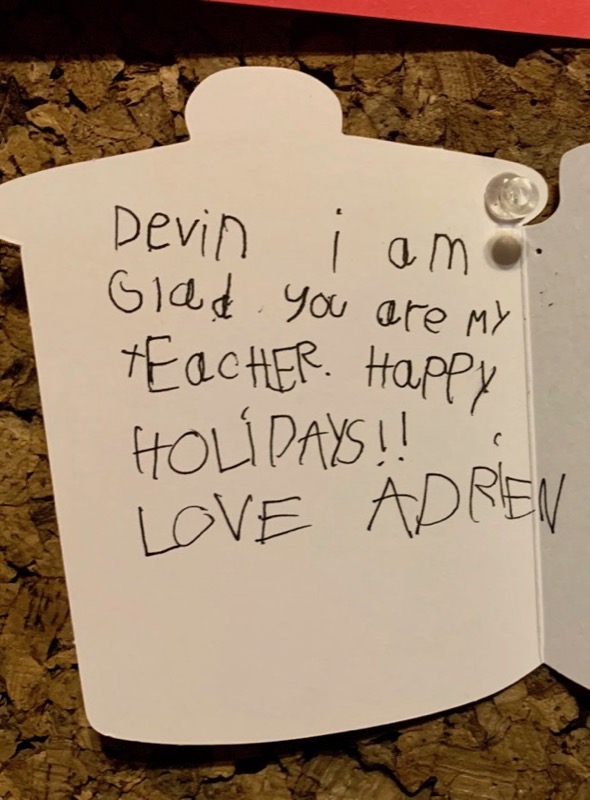 Devin i am
Glad you are my
tEacHER. Happy
HOLiDAYS!!
LOVE ADRiEN